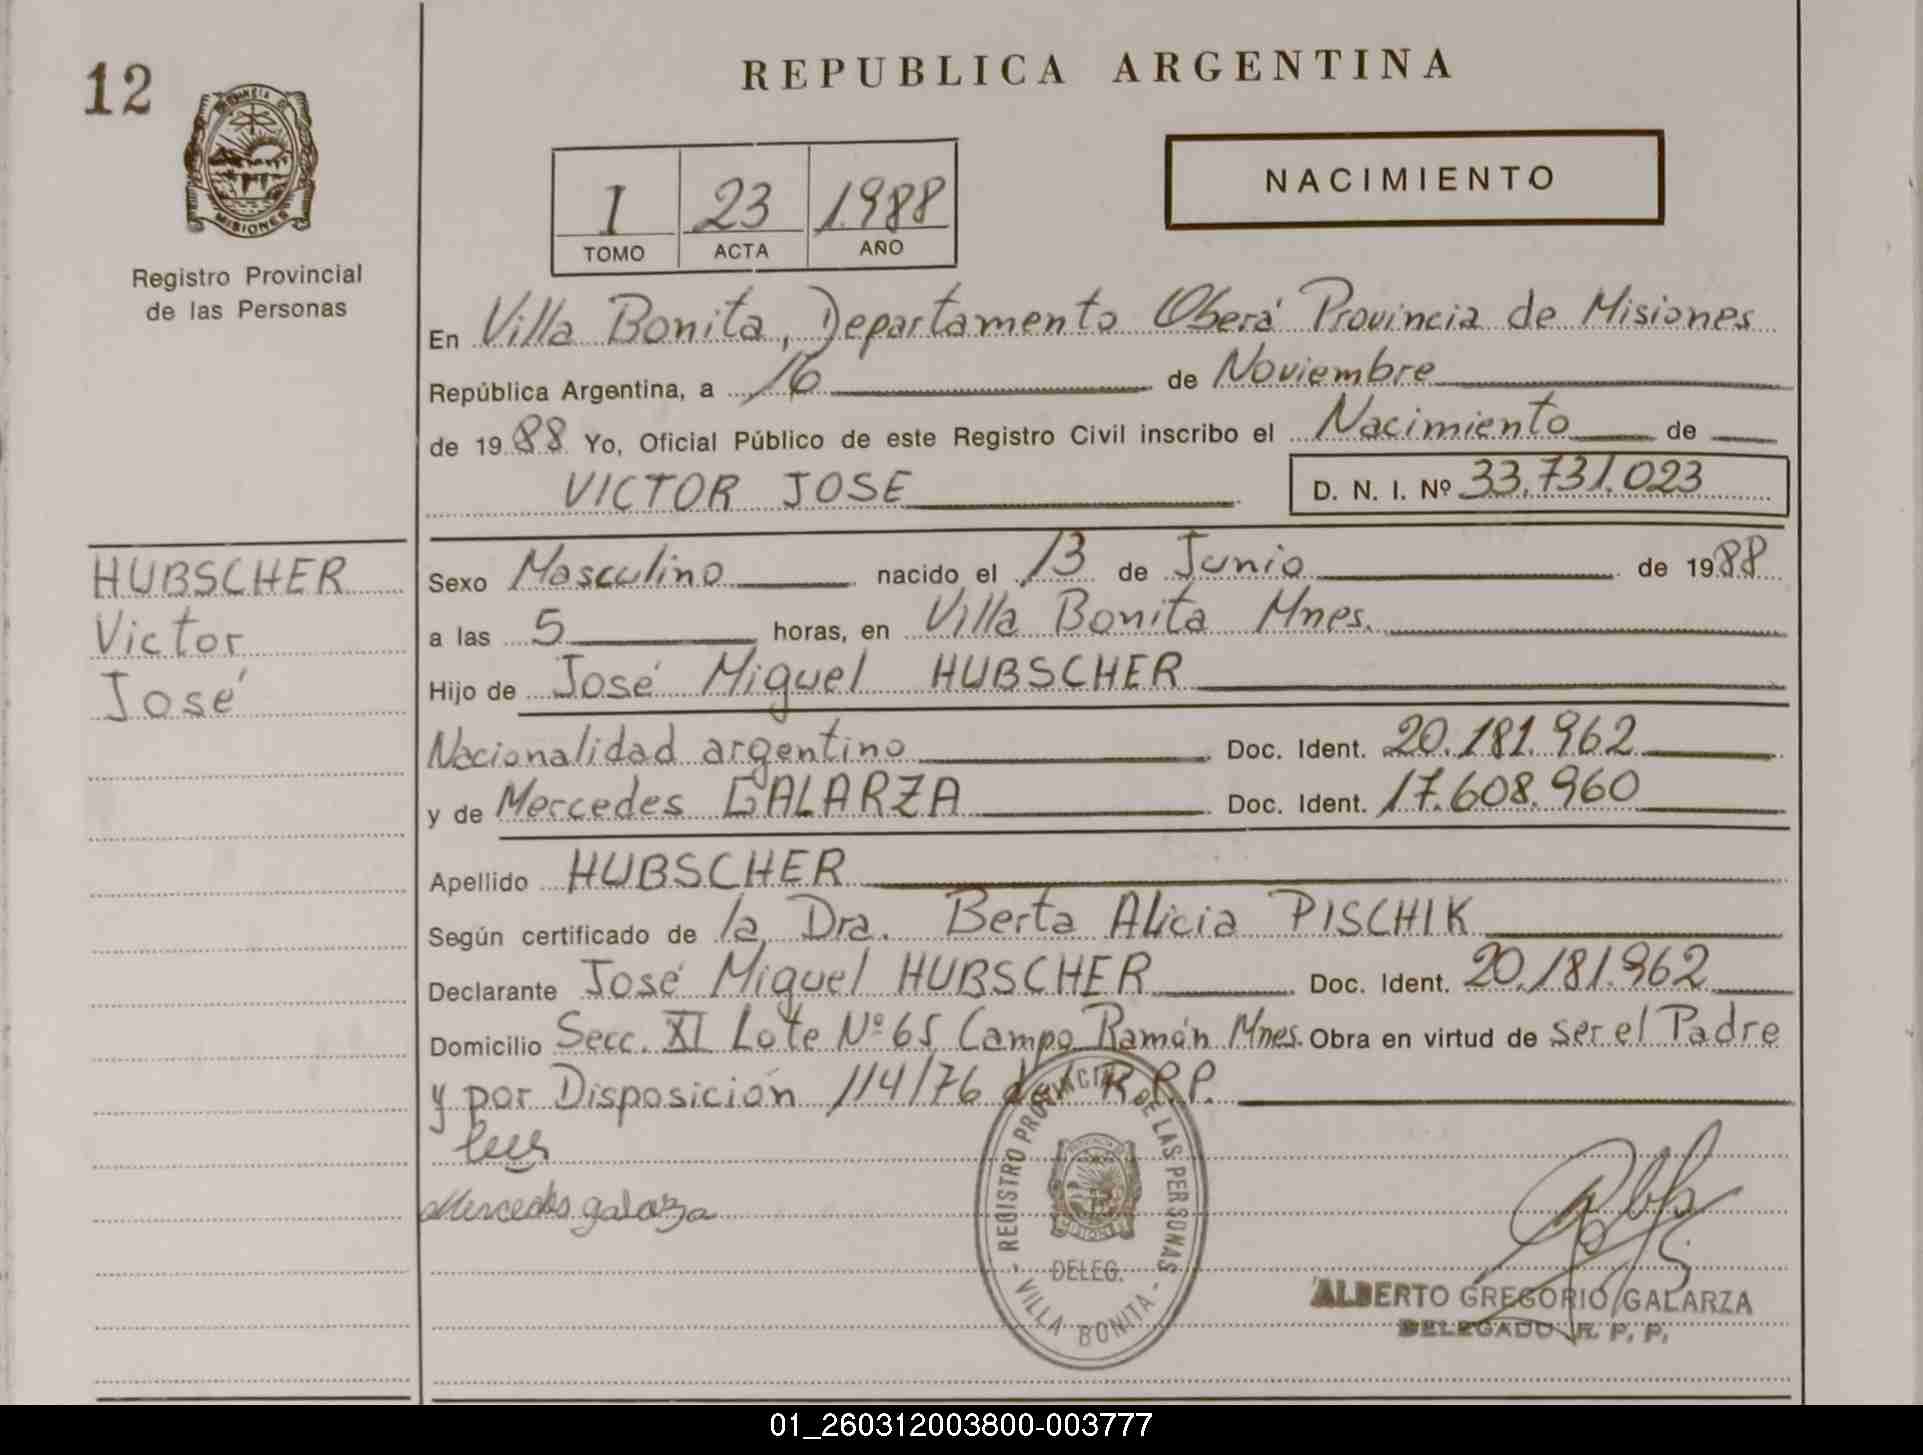 12
REPUBLICA ARGENTINA
PROVINCIA DE
MISIONES
Registro Provincial
de las Personas
I 23 1988
TOMO ACTA AÑO
NACIMIENTO
En Villa Bonita, Departamento Oberá Provincia de Misiones
República Argentina, a 16 de Noviembre
de 1988 Yo, Oficial Público de este Registro Civil inscribo el Nacimiento de
VICTOR JOSE D. N. I. Nº 33.731.023
HUBSCHER
Victor
José
Sexo Masculino nacido el 13 de Junio de 1988
a las 5 horas, en Villa Bonita Mnes.
Hijo de José Miguel HUBSCHER
Nacionalidad argentino Doc. Ident. 20.181.962
y de Mercedes GALARZA Doc. Ident. 17.608.960
Apellido HUBSCHER
Según certificado de la Dra. Berta Alicia PISCHIK
Declarante José Miguel HUBSCHER Doc. Ident. 20.181.962
Domicilio Secc. XI Lote Nº 65 Campo Ramón Mnes. Obra en virtud de ser el Padre
y por Disposición 114/76 del R.P.P.
Mercedes galarza
REGISTRO PROVINCIAL DE LAS PERSONAS
MISIONES
DELEG.
- VILLA BONITA -
ALBERTO GREGORIO GALARZA
DELEGADO R. P. P.
01_260312003800-003777